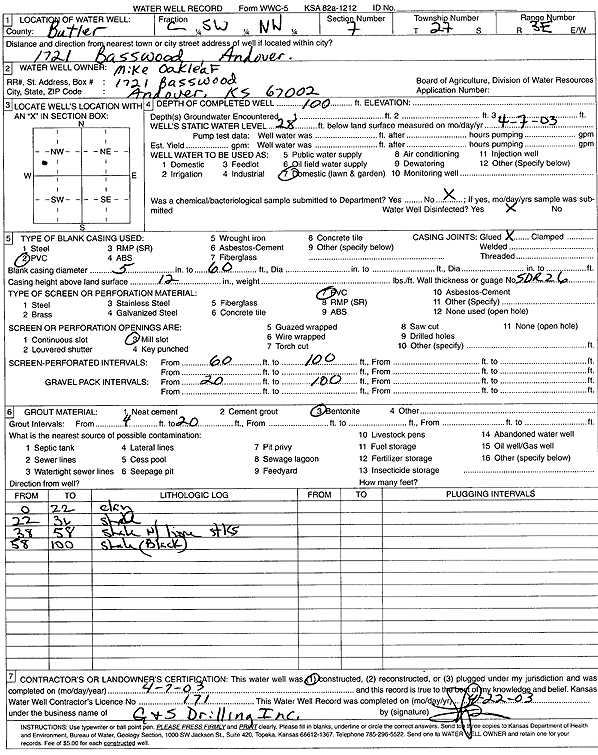 WATER WELL RECORD Form WWC-5 KSA 82a-1212 ID No.
1 LOCATION OF WATER WELL: Fraction Section Number Township Number Range Number
County: Butler C SW NW 7 T 27 S R 3E E/W
Distance and direction from nearest town or city street address of well if located within city?
1721 Basswood, Andover.
2 WATER WELL OWNER: Mike Oakleaf
RR#, St. Address, Box # : 1721 Basswood Board of Agriculture, Division of Water Resources
City, State, ZIP Code : Andover, KS 67002 Application Number:
3 LOCATE WELL'S LOCATION WITH AN "X" IN SECTION BOX:
N
NW NE
W E
SW SE
S
4 DEPTH OF COMPLETED WELL 100 ft. ELEVATION:
Depth(s) Groundwater Encountered 1 ft. 2 ft. 3 ft.
WELL'S STATIC WATER LEVEL 28 ft. below land surface measured on mo/day/yr 4-7-03
Pump test data: Well water was ft. after hours pumping gpm
Est. Yield gpm: Well water was ft. after hours pumping gpm
WELL WATER TO BE USED AS: 5 Public water supply 8 Air conditioning 11 Injection well
1 Domestic 3 Feedlot 6 Oil field water supply 9 Dewatering 12 Other (Specify below)
2 Irrigation 4 Industrial 7 Domestic (lawn & garden) 10 Monitoring well
Was a chemical/bacteriological sample submitted to Department? Yes No X ; If yes, mo/day/yrs sample was submitted
Water Well Disinfected? Yes X No
5 TYPE OF BLANK CASING USED: 5 Wrought iron 8 Concrete tile CASING JOINTS: Glued X Clamped
1 Steel 3 RMP (SR) 6 Asbestos-Cement 9 Other (specify below) Welded
2 PVC 4 ABS 7 Fiberglass Threaded
Blank casing diameter 5 in. to 60 ft., Dia in. to ft., Dia in. to ft.
Casing height above land surface 12 in., weight lbs./ft. Wall thickness or guage No. SDR26
TYPE OF SCREEN OR PERFORATION MATERIAL: 7 PVC 10 Asbestos-Cement
1 Steel 3 Stainless Steel 5 Fiberglass 8 RMP (SR) 11 Other (Specify)
2 Brass 4 Galvanized Steel 6 Concrete tile 9 ABS 12 None used (open hole)
SCREEN OR PERFORATION OPENINGS ARE: 5 Guazed wrapped 8 Saw cut 11 None (open hole)
1 Continuous slot 3 Mill slot 6 Wire wrapped 9 Drilled holes
2 Louvered shutter 4 Key punched 7 Torch cut 10 Other (specify) ft.
SCREEN-PERFORATED INTERVALS: From 60 ft. to 100 ft., From ft. to ft.
From ft. to ft., From ft. to ft.
GRAVEL PACK INTERVALS: From 20 ft. to 100 ft., From ft. to ft.
From ft. to ft., From ft. to ft.
6 GROUT MATERIAL: 1 Neat cement 2 Cement grout 3 Bentonite 4 Other
Grout Intervals: From 4 ft. to 20 ft., From ft. to ft., From ft. to ft.
What is the nearest source of possible contamination: 10 Livestock pens 14 Abandoned water well
1 Septic tank 4 Lateral lines 7 Pit privy 11 Fuel storage 15 Oil well/Gas well
2 Sewer lines 5 Cess pool 8 Sewage lagoon 12 Fertilizer storage 16 Other (specify below)
3 Watertight sewer lines 6 Seepage pit 9 Feedyard 13 Insecticide storage
Direction from well? How many feet?
FROM TO LITHOLOGIC LOG FROM TO PLUGGING INTERVALS
0 22 clay
22 shale
38 58 shale w/ lime stks
58 100 shale (Black)
7 CONTRACTOR'S OR LANDOWNER'S CERTIFICATION: This water well was (1) constructed, (2) reconstructed, or (3) plugged under my jurisdiction and was
completed on (mo/day/year) 4-7-03 and this record is true to the best of my knowledge and belief. Kansas
Water Well Contractor's Licence No 171 This Water Well Record was completed on (mo/day/yr) 4-22-03
under the business name of G & S Drilling Inc. by (signature)
INSTRUCTIONS: Use typewriter or ball point pen. PLEASE PRESS FIRMLY and PRINT clearly. Please fill in blanks, underline or circle the correct answers. Send top three copies to Kansas Department of Health
and Environment, Bureau of Water, Geology Section, 1000 SW Jackson St., Suite 420, Topeka, Kansas 66612-1367. Telephone 785-296-5522. Send one to WATER WELL OWNER and retain one for your
records. Fee of $5.00 for each constructed well.